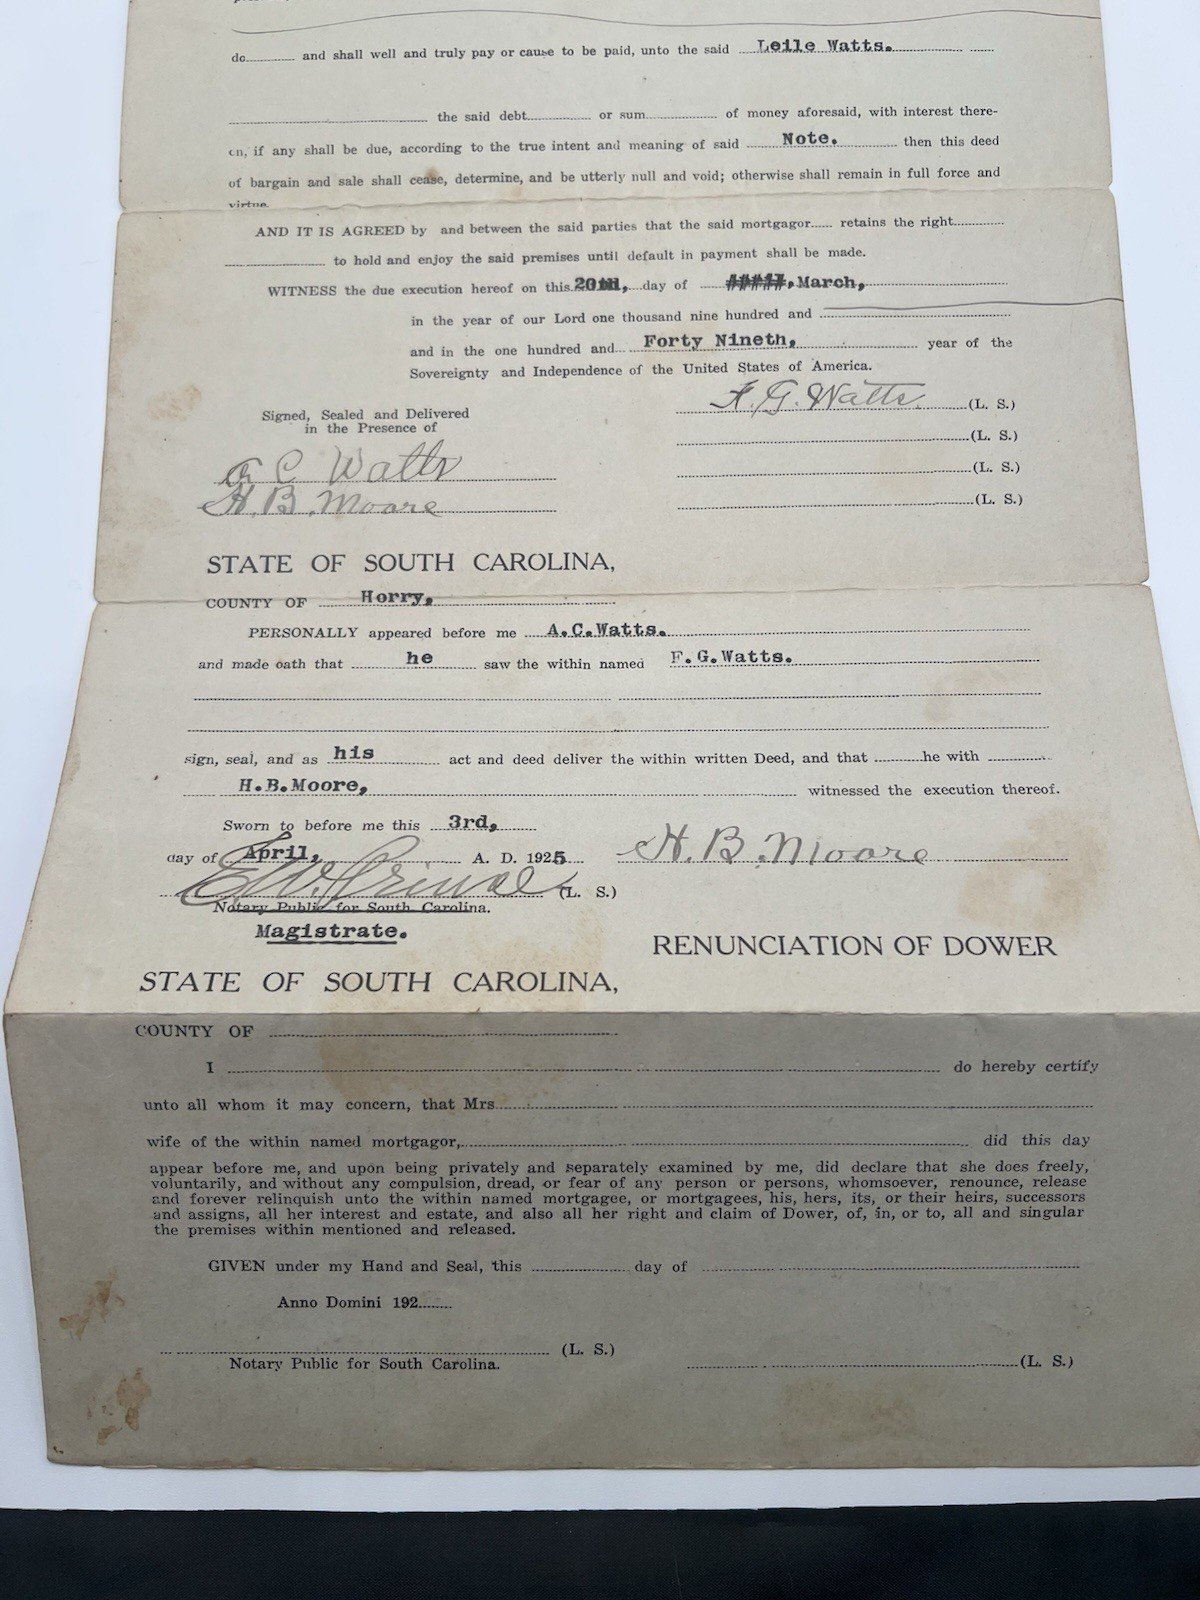 do and shall well and truly pay or cause to be paid, unto the said Leile Watts.
the said debt or sum of money aforesaid, with interest there-
on, if any shall be due, according to the true intent and meaning of said Note. then this deed
of bargain and sale shall cease, determine, and be utterly null and void; otherwise shall remain in full force and
virtue.
AND IT IS AGREED by and between the said parties that the said mortgagor retains the right
to hold and enjoy the said premises until default in payment shall be made.
WITNESS the due execution hereof on this day of March,
in the year of our Lord one thousand nine hundred and
and in the one hundred and Forty Nineth, year of the
Sovereignty and Independence of the United States of America.
F. G. Watts. (L. S.)
Signed, Sealed and Delivered
in the Presence of
(L. S.)
A C Watts (L. S.)
H. B. Moore (L. S.)
STATE OF SOUTH CAROLINA,
COUNTY OF Horry,
PERSONALLY appeared before me A.C.Watts.
and made oath that he saw the within named F.G.Watts.
sign, seal, and as his act and deed deliver the within written Deed, and that he with
H.B.Moore, witnessed the execution thereof.
Sworn to before me this 3rd,
day of April, A. D. 1925 H. B. Moore
(L. S.)
Notary Public for South Carolina.
Magistrate.
RENUNCIATION OF DOWER
STATE OF SOUTH CAROLINA,
COUNTY OF
I do hereby certify
unto all whom it may concern, that Mrs
wife of the within named mortgagor, did this day
appear before me, and upon being privately and separately examined by me, did declare that she does freely,
voluntarily, and without any compulsion, dread, or fear of any person or persons, whomsoever, renounce, release
and forever relinquish unto the within named mortgagee, or mortgagees, his, hers, its, or their heirs, successors
and assigns, all her interest and estate, and also all her right and claim of Dower, of, in, or to, all and singular
the premises within mentioned and released.
GIVEN under my Hand and Seal, this day of
Anno Domini 192
(L. S.)
Notary Public for South Carolina. (L. S.)